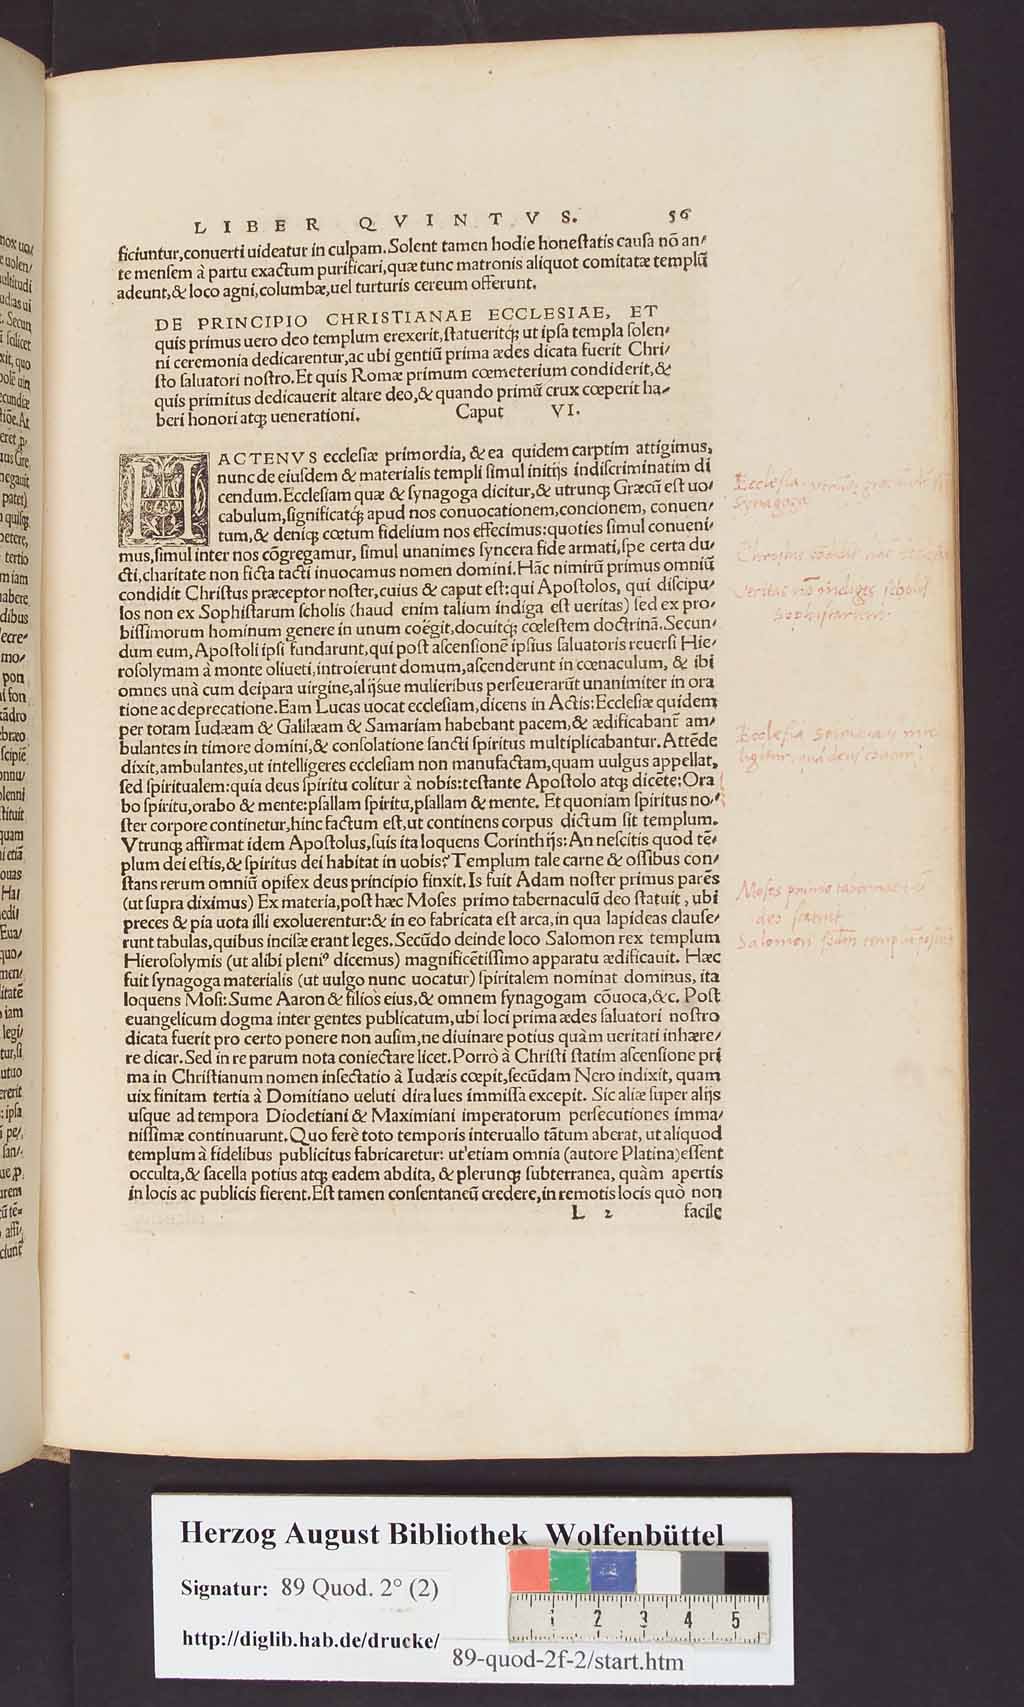 LIBER QVINTVS. 56
ficiuntur, conuerti uideatur in culpam. Solent tamen hodie honeſtatis cauſa nõ an/
te menſem à partu exactum purificari, quæ tunc matronis aliquot comitatæ templũ
adeunt, & loco agni, columbæ, uel turturis cereum offerunt.
DE PRINCIPIO CHRISTIANAE ECCLESIAE, ET
quis primus uero deo templum erexerit, ſtatueritq́; ut ipſa templa ſolen/
ni ceremonia dedicarentur, ac ubi gentiũ prima ædes dicata fuerit Chri/
ſto ſaluatori noſtro. Et quis Romæ primum cœmeterium condiderit, &
quis primitus dedicauerit altare deo, & quando primũ crux cœperit ha/
beri honori atq; uenerationi. Caput VI.
HACTENVS eccleſiæ primordia, & ea quidem carptim attigimus,
nunc de eiuſdem & materialis templi ſimul initijs indiſcriminatim di
cendum. Eccleſiam quæ & ſynagoga dicitur, & utrunq; Græcũ eſt uo/
cabulum, ſignificatq́; apud nos conuocationem, concionem, conuen/
tum, & deniq; cœtum fidelium nos effecimus: quoties ſimul conueni/
mus, ſimul inter nos cõgregamur, ſimul unanimes ſyncera fide armati, ſpe certa du/
cti, charitate non ficta tacti inuocamus nomen domini. Hãc nimirũ primus omniũ
condidit Chriſtus præceptor noſter, cuius & caput eſt: qui Apoſtolos, qui diſcipu/
los non ex Sophiſtarum ſcholis (haud enim talium indiga eſt ueritas) ſed ex pro/
biſſimorum hominum genere in unum coëgit, docuitq́; cœleſtem doctrinã. Secun/
dum eum, Apoſtoli ipſi fundarunt, qui poſt aſcenſionẽ ipſius ſaluatoris reuerſi Hie/
roſolymam à monte oliueti, introierunt domum, aſcenderunt in cœnaculum, & ibi
omnes unà cum deipara uirgine, alijsúe mulieribus perſeuerarũt unanimiter in ora
tione ac deprecatione. Eam Lucas uocat eccleſiam, dicens in Actis: Eccleſiæ quidem
per totam Iudæam & Galilæam & Samariam habebant pacem, & ædificabanť am/
bulantes in timore domini, & conſolatione ſancti ſpiritus multiplicabantur. Attẽde
dixit, ambulantes, ut intelligeres eccleſiam non manufactam, quam uulgus appellat,
ſed ſpiritualem: quia deus ſpiritu colitur à nobis: teſtante Apoſtolo atq; dicẽte: Ora
bo ſpiritu, orabo & mente: pſallam ſpiritu, pſallam & mente. Et quoniam ſpiritus no/
ſter corpore continetur, hinc factum eſt, ut continens corpus dictum ſit templum.
Vtrunq; affirmat idem Apoſtolus, ſuis ita loquens Corinthijs: An neſcitis quod tẽ/
plum dei eſtis, & ſpiritus dei habitat in uobis? Templum tale carne & oſſibus con/
ſtans rerum omniũ opifex deus principio finxit. Is fuit Adam noſter primus parẽs
(ut ſupra diximus) Ex materia, poſt hæc Moſes primo tabernaculũ deo ſtatuit, ubi
preces & pia uota illi exoluerentur: & in eo fabricata eſt arca, in qua lapideas clauſe/
runt tabulas, quibus inciſæ erant leges. Secũdo deinde loco Salomon rex templum
Hieroſolymis (ut alibi pleniꝰ dicemus) magnificẽtiſſimo apparatu ædificauit. Hæc
fuit ſynagoga materialis (ut uulgo nunc uocatur) ſpiritalem nominat dominus, ita
loquens Moſi: Sume Aaron & filios eius, & omnem ſynagogam cõuoca, &c. Poſt
euangelicum dogma inter gentes publicatum, ubi loci prima ædes ſaluatori noſtro
dicata fuerit pro certo ponere non auſim, ne diuinare potius quàm ueritati inhære/
re dicar. Sed in re parum nota coniectare licet. Porrò à Chriſti ſtatim aſcenſione pri
ma in Chriſtianum nomen inſectatio à Iudæis cœpit, ſecũdam Nero indixit, quam
uix finitam tertia à Domitiano ueluti dira lues immiſſa excepit. Sic aliæ ſuper alijs
uſque ad tempora Diocletiani & Maximiani imperatorum perſecutiones imma/
niſſimæ continuarunt. Quo ferè toto temporis interuallo tãtum aberat, ut aliquod
templum à fidelibus publicitus fabricaretur: ut etiam omnia (autore Platina) eſſent
occulta, & ſacella potius atq; eadem abdita, & plerunq; ſubterranea, quàm apertis
in locis ac publicis fierent. Eſt tamen conſentaneũ credere, in remotis locis quò non
L 2 facile
Eccleſia
Synagoga
Chriſtus
Veritas indiget ſcholis
Sophiſtarum
Eccleſia
Moſes primo tabernaculũ
deo ſtatuit
Salomon templũ
Herzog August Bibliothek Wolfenbüttel
Signatur: 89 Quod. 2° (2)
http://diglib.hab.de/drucke/
89-quod-2f-2/start.htm
1 2 3 4 5